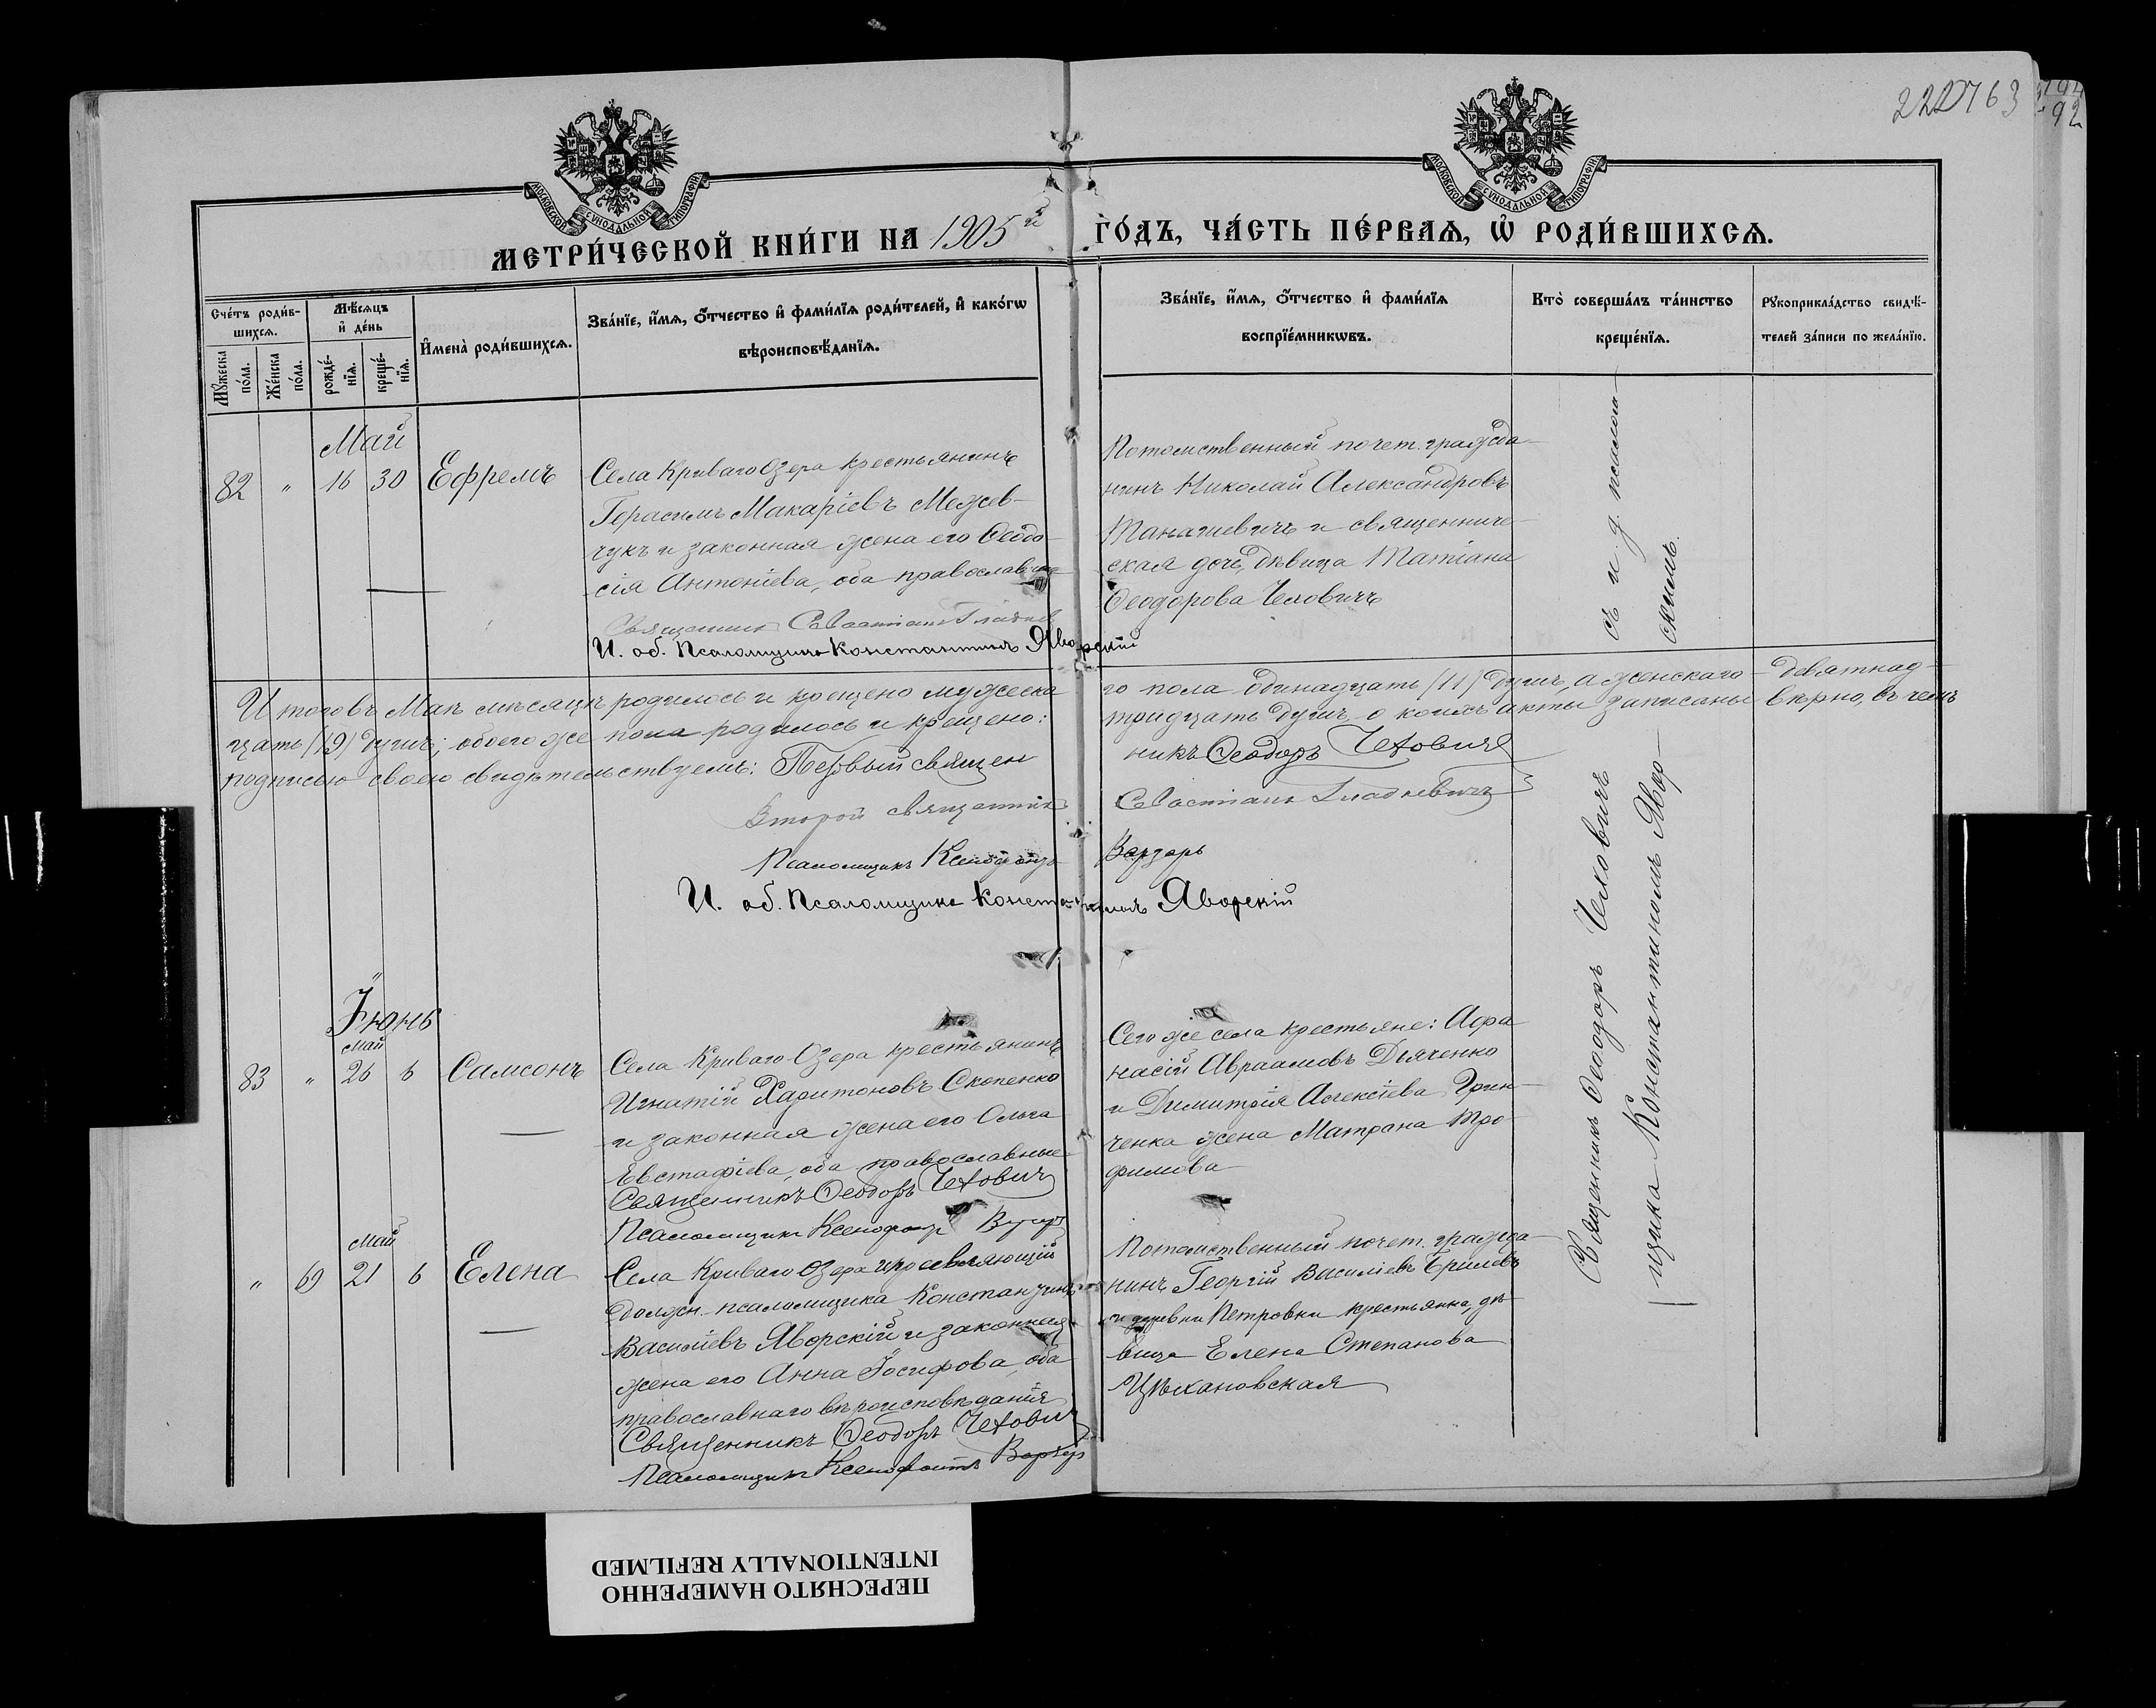 222 763
194
92
МОСКОВСКОЙ СѴНОДАЛЬНОЙ ТИПОГРАФІИ
МОСКОВСКОЙ СѴНОДАЛЬНОЙ ТИПОГРАФІИ
МЕТРИ́ЧЕСКОЙ КНИ́ГИ НА 1905й
ГО́ДЪ, ЧА́СТЬ ПЕ́РВАѦ, Ѡ҆ РОДИ́ВШИХСѦ.
Сче́тъ роди́в-
шихсѧ.
Мꙋ́жеска по́ла.
Же́нска по́ла.
Мѣ́сѧцъ и҆ де́нь
рожде́-
нїѧ.
креще́-
нїѧ.
И҆мена̀ роди́вшихсѧ.
Зва́нїе, и҆́мѧ, ѻ҆́тчество и҆ фами́лїѧ роди́телей, и҆ како́гѡ
вѣроисповѣ́данїѧ.
Зва́нїе, и҆́мѧ, ѻ҆́тчество и҆ фами́лїѧ
воспрїе́мникѡвъ.
Кто̀ соверша́лъ та́инство
креще́нїѧ.
Рꙋкоприкла́дство свидѣ́-
телей за́писи по жела́нїю.
Май
82 " 16 30 Ефремъ
Села Криваго Озера крестьянинъ
Герасимъ Макаріевъ Межев-
чукъ и законная жена его Ѳеодо-
сія Антоніева, оба православные
Священникъ Севастіанъ
И. об. Псаломщика Константинъ Яворскій
Потомственный почет. гражда-
нинъ Николай Александровъ
и священниче-
ская дочь, дѣвица Татіана
Ѳеодорова Чеховичъ
Итого въ Маѣ мѣсяцѣ родилось и крещено мужеска-
го пола одинадцать (11) душъ, а женскаго - девятнад-
цать (19) душъ; обоего же пола родилось и крещено:
тридцать душъ, о коихъ акты записаны вѣрно, въ чемъ
подписью своею свидѣтельствуемъ: Первый священ
никъ Ѳеодоръ Чеховичъ
Второй священникъ Севастіанъ Гладкевичъ
Псаломщикъ Ксенофонтъ Варзарь
И. об. Псаломщика Константинъ Яворскій
Іюнь
май
83 " 26 6 Самсонъ
Села Криваго Озера крестьянинъ
Игнатій Харитоновъ Скопенко
и законная жена его Ольга
Евстафіева, оба православные
Священникъ Ѳеодоръ Чеховичъ
Псаломщикъ Ксенофонтъ
Сего же села крестьяне: Афа
насій Авраамовъ Дьяченко
и Димитрія Алексіева Грин-
ченка жена Матрона Тро-
фимова
май
" 69 21 6 Елена
Села Криваго Озера исправляющій
должн. псаломщика Константинъ
Василіевъ Яворскій и законная
жена его Анна Іосифова, оба
православнаго вѣроисповѣданія
Священникъ Ѳеодоръ Чеховичъ
Псаломщикъ Ксенофонтъ Варзарь
Потомственный почет. гражда-
нинъ Георгій Василіевъ
и деревни Петровки крестьянка, дѣ-
вица Елена Степанова
Цѣхановская
Священникъ Ѳеодоръ Чеховичъ съ и. д. псалом-
щика Константиномъ Явор-
скимъ.
ПЕРЕСНЯТО НАМЕРЕННО
INTENTIONALLY REFILMED